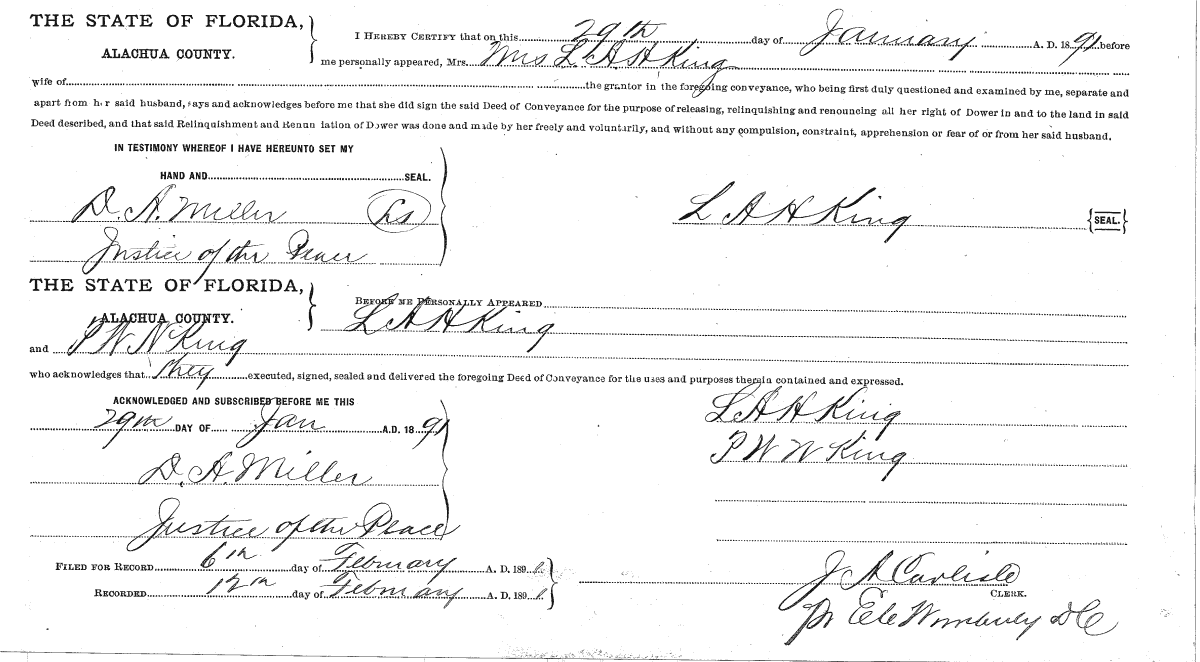 THE STATE OF FLORIDA,
ALACHUA COUNTY.
I HEREBY CERTIFY that on this 29th day of January A. D. 1891 before
me personally appeared, Mrs. Mrs L A H King
wife of the grantor in the foregoing conveyance, who being first duly questioned and examined by me, separate and
apart from her said husband, says and acknowledges before me that she did sign the said Deed of Conveyance for the purpose of releasing, relinquishing and renouncing all her right of Dower in and to the land in said
Deed described, and that said Relinquishment and Renunciation of Dower was done and made by her freely and voluntarily, and without any compulsion, constraint, apprehension or fear of or from her said husband.
IN TESTIMONY WHEREOF I HAVE HEREUNTO SET MY
HAND AND SEAL.
D. A. Miller Ls
L A H King {SEAL.}
Justice of the Peace
THE STATE OF FLORIDA,
ALACHUA COUNTY.
BEFORE ME PERSONALLY APPEARED
L A H King
and P W N King
who acknowledges that they executed, signed, sealed and delivered the foregoing Deed of Conveyance for the uses and purposes therein contained and expressed.
ACKNOWLEDGED AND SUBSCRIBED BEFORE ME THIS
29th DAY OF Jan A.D. 1891
L A H King
P W N King
D. A. Miller
Justice of the Peace
FILED FOR RECORD 6th day of February A. D. 1891
RECORDED 12th day of February A. D. 1891
J A Carlisle
CLERK.
Pr Wimberly D C